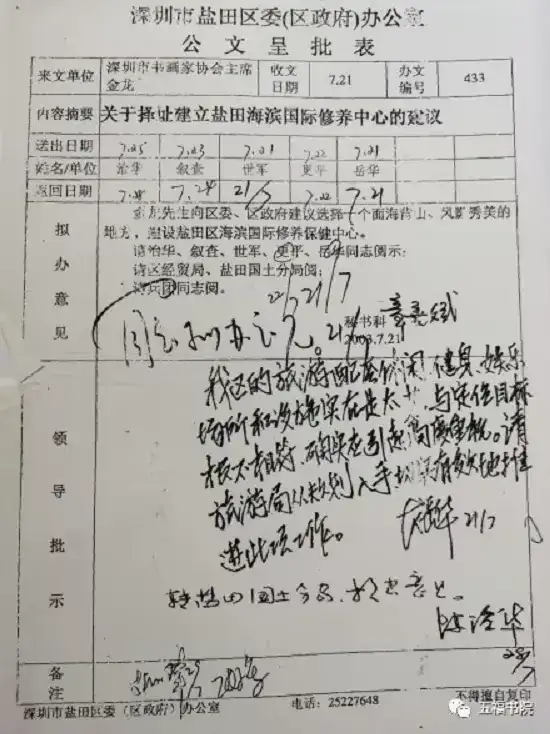 深圳市盐田区委(区政府)办公室
公文呈批表
来文单位 深圳市书画家协会主席金龙 收文日期 7.21 办文编号 433
内容摘要 关于择址建立盐田海滨国际修养中心的建议
送出日期 7.25 7.23 7.21 7.22 7.21
姓名/单位 治华 叙查 世军 更平 岳华
返回日期 7.24 21/7 7.22 7.21
拟办意见
金龙先生向区委、区政府建议选择一个面海背山、风景秀美的
地方，建设盐田区海滨国际修养保健中心。
请治华、叙查、世军、更平、岳华同志阅示；
请区经贸局、盐田国土分局阅；
同志阅。
22/7 21/7
同意拟办意见。21/7
秘书科
2003.7.21
领导批示
我区的旅游配套休闲、健身、娱乐
场所和设施实在是太少，与定位目标
极不相符，确实应引起高度重视。请
旅游局从规划入手，切实有效地推
进此项工作。
21/7
转盐田国土分局，提出意见。
治华
备注
深圳市盐田区委（区政府）办公室 电话：25227648 不得擅自复印
五福书院